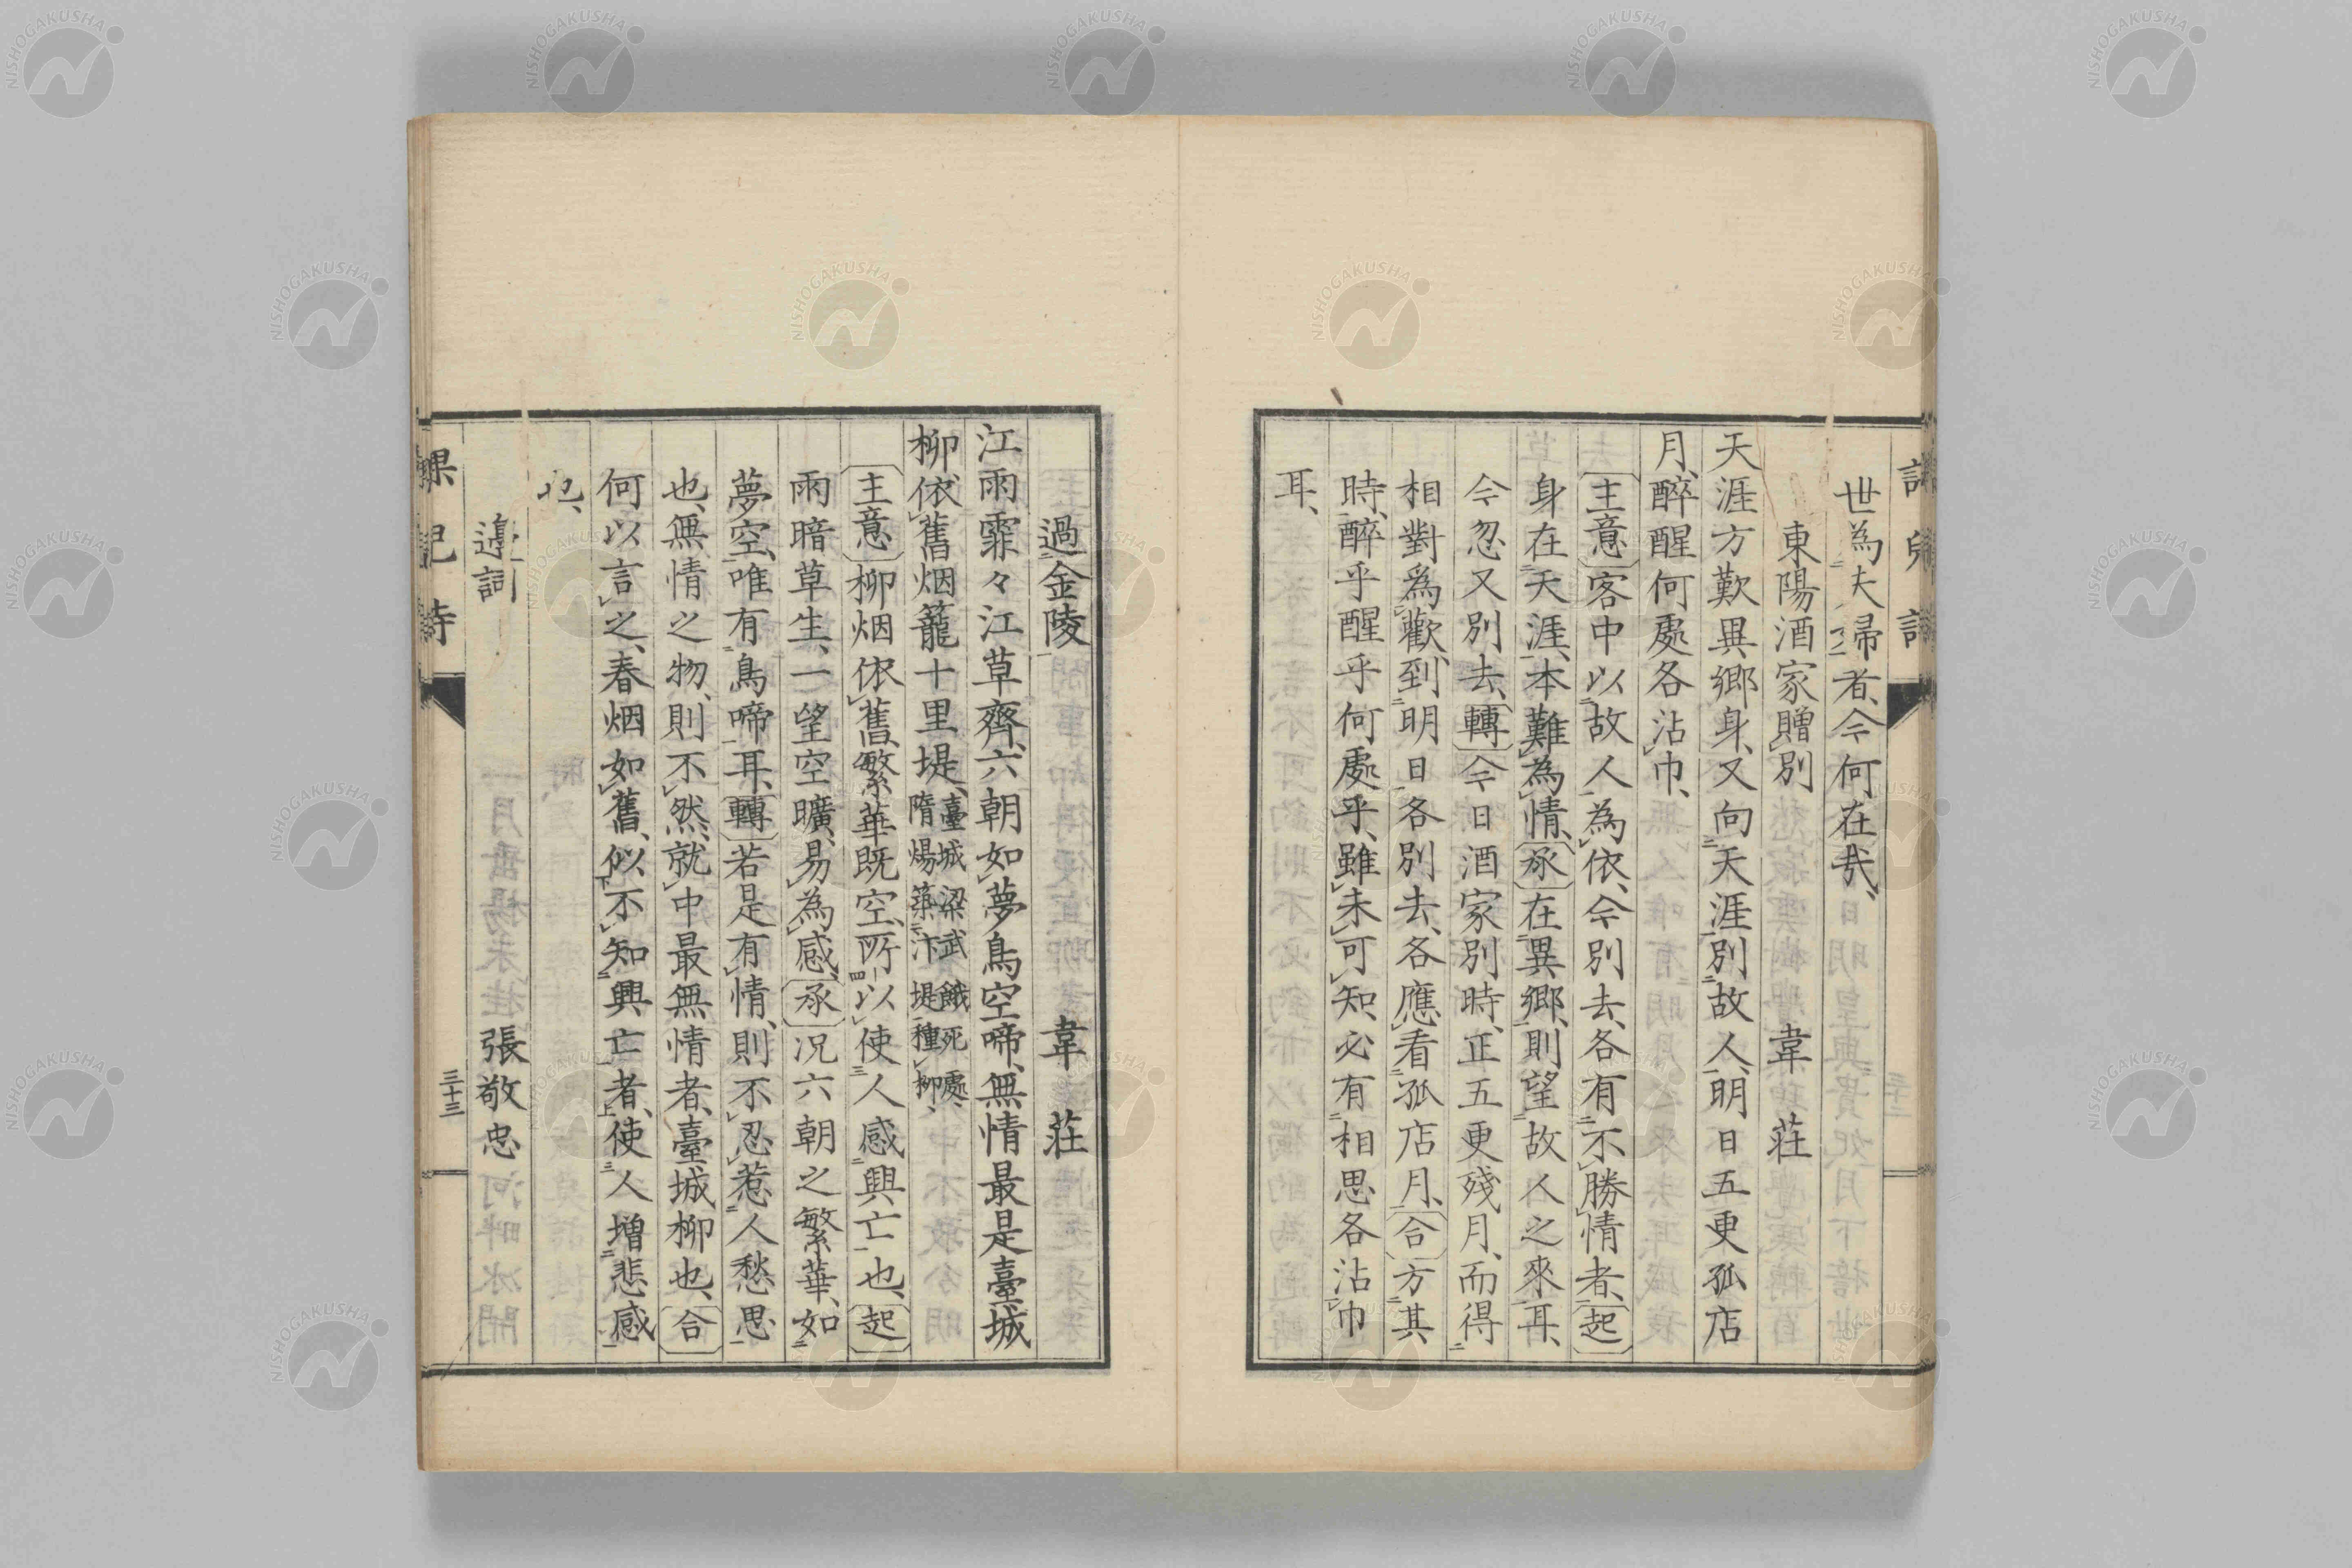 世為夫婦者、今何在哉、
東陽酒家贈別 韋莊
天涯方歎異鄉身、又向天涯別故人、明日五更孤店
月、醉醒何處各沾巾、
主意客中以故人為依、今別去、各有不勝情者、起
身在天涯、本難為情、承在異鄉、則望故人之來耳、
今忽又別去、轉今日酒家別時、正五更殘月、而得
相對為歡、到明日各別去、各應看孤店月、合方其
時、醉乎醒乎何處乎、雖未可知、必有相思各沾巾
耳、
過金陵 韋莊
江雨霏々江草齊、六朝如夢鳥空啼、無情最是臺城
柳、依舊烟籠十里堤、臺城梁武餓死處、
隋煬築汴堤種柳、
主意柳烟依舊、繁華既空、所以使人感興亡也、起
雨暗草生、一望空曠、易為感、承況六朝之繁華、如
夢空、唯有鳥啼耳、轉若是有情、則不忍惹人愁思
也、無情之物、則不然、就中最無情者、臺城柳也、合
何以言之、春烟如舊、似不知興亡者、使人增悲感
也、
邊詞 張敬忠
課兒詩
三十三
NISHOGAKUSHA